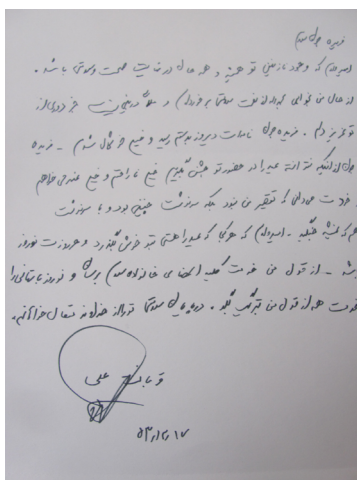 فریده جان عزیزم
امیدوارم که وجود نازنین تو همیشه و همه حال در نهایت صحت و سلامتی باشد.
از حال من خواهی بحمدالله سلامتی برخوردارم و ملالی نیست جز دوری از
تو عزیز دلم. فریده جان نامه‌ات دیروز بدستم رسید و خیلی خوشحال شدم - فریده
جان از اینکه نتوانستم عید را در حضور تو جشن بگیرم خیلی ناراحتم و خیلی عذر می‌خواهم
خودت میدانی که تقصیر من نبود بلکه سرنوشت چنین بود و با سرنوشت
هم که نمیشه جنگید - امیدوارم که هر کجا که عید را هستی بتو خوش بگذرد و هر روزت نوروز
باشد - از قول من خدمت کلیه اعضای خانواده سلام برسان و نوروز باستانی را
خدمت همه از قول من تبریک بگو. در پایان سلامتی تو را از خداوند متعال خواهانم.
قربانت علی
۵۳/۱۲/۱۷